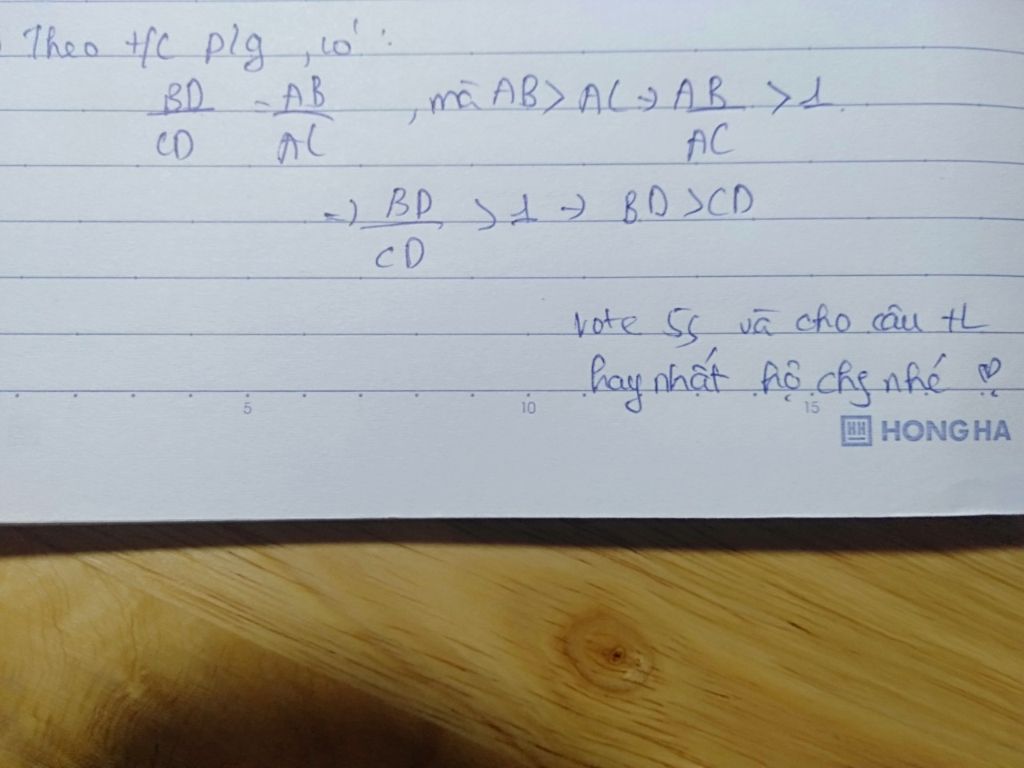 Theo t/c p/g, có:
BD/CD = AB/AC, mà AB > AC => AB/AC > 1
=> BD/CD > 1 => BD > CD
vote 5s và cho câu tL
hay nhất hộ chg nhé ♡
5 10 15
HH HONG HA